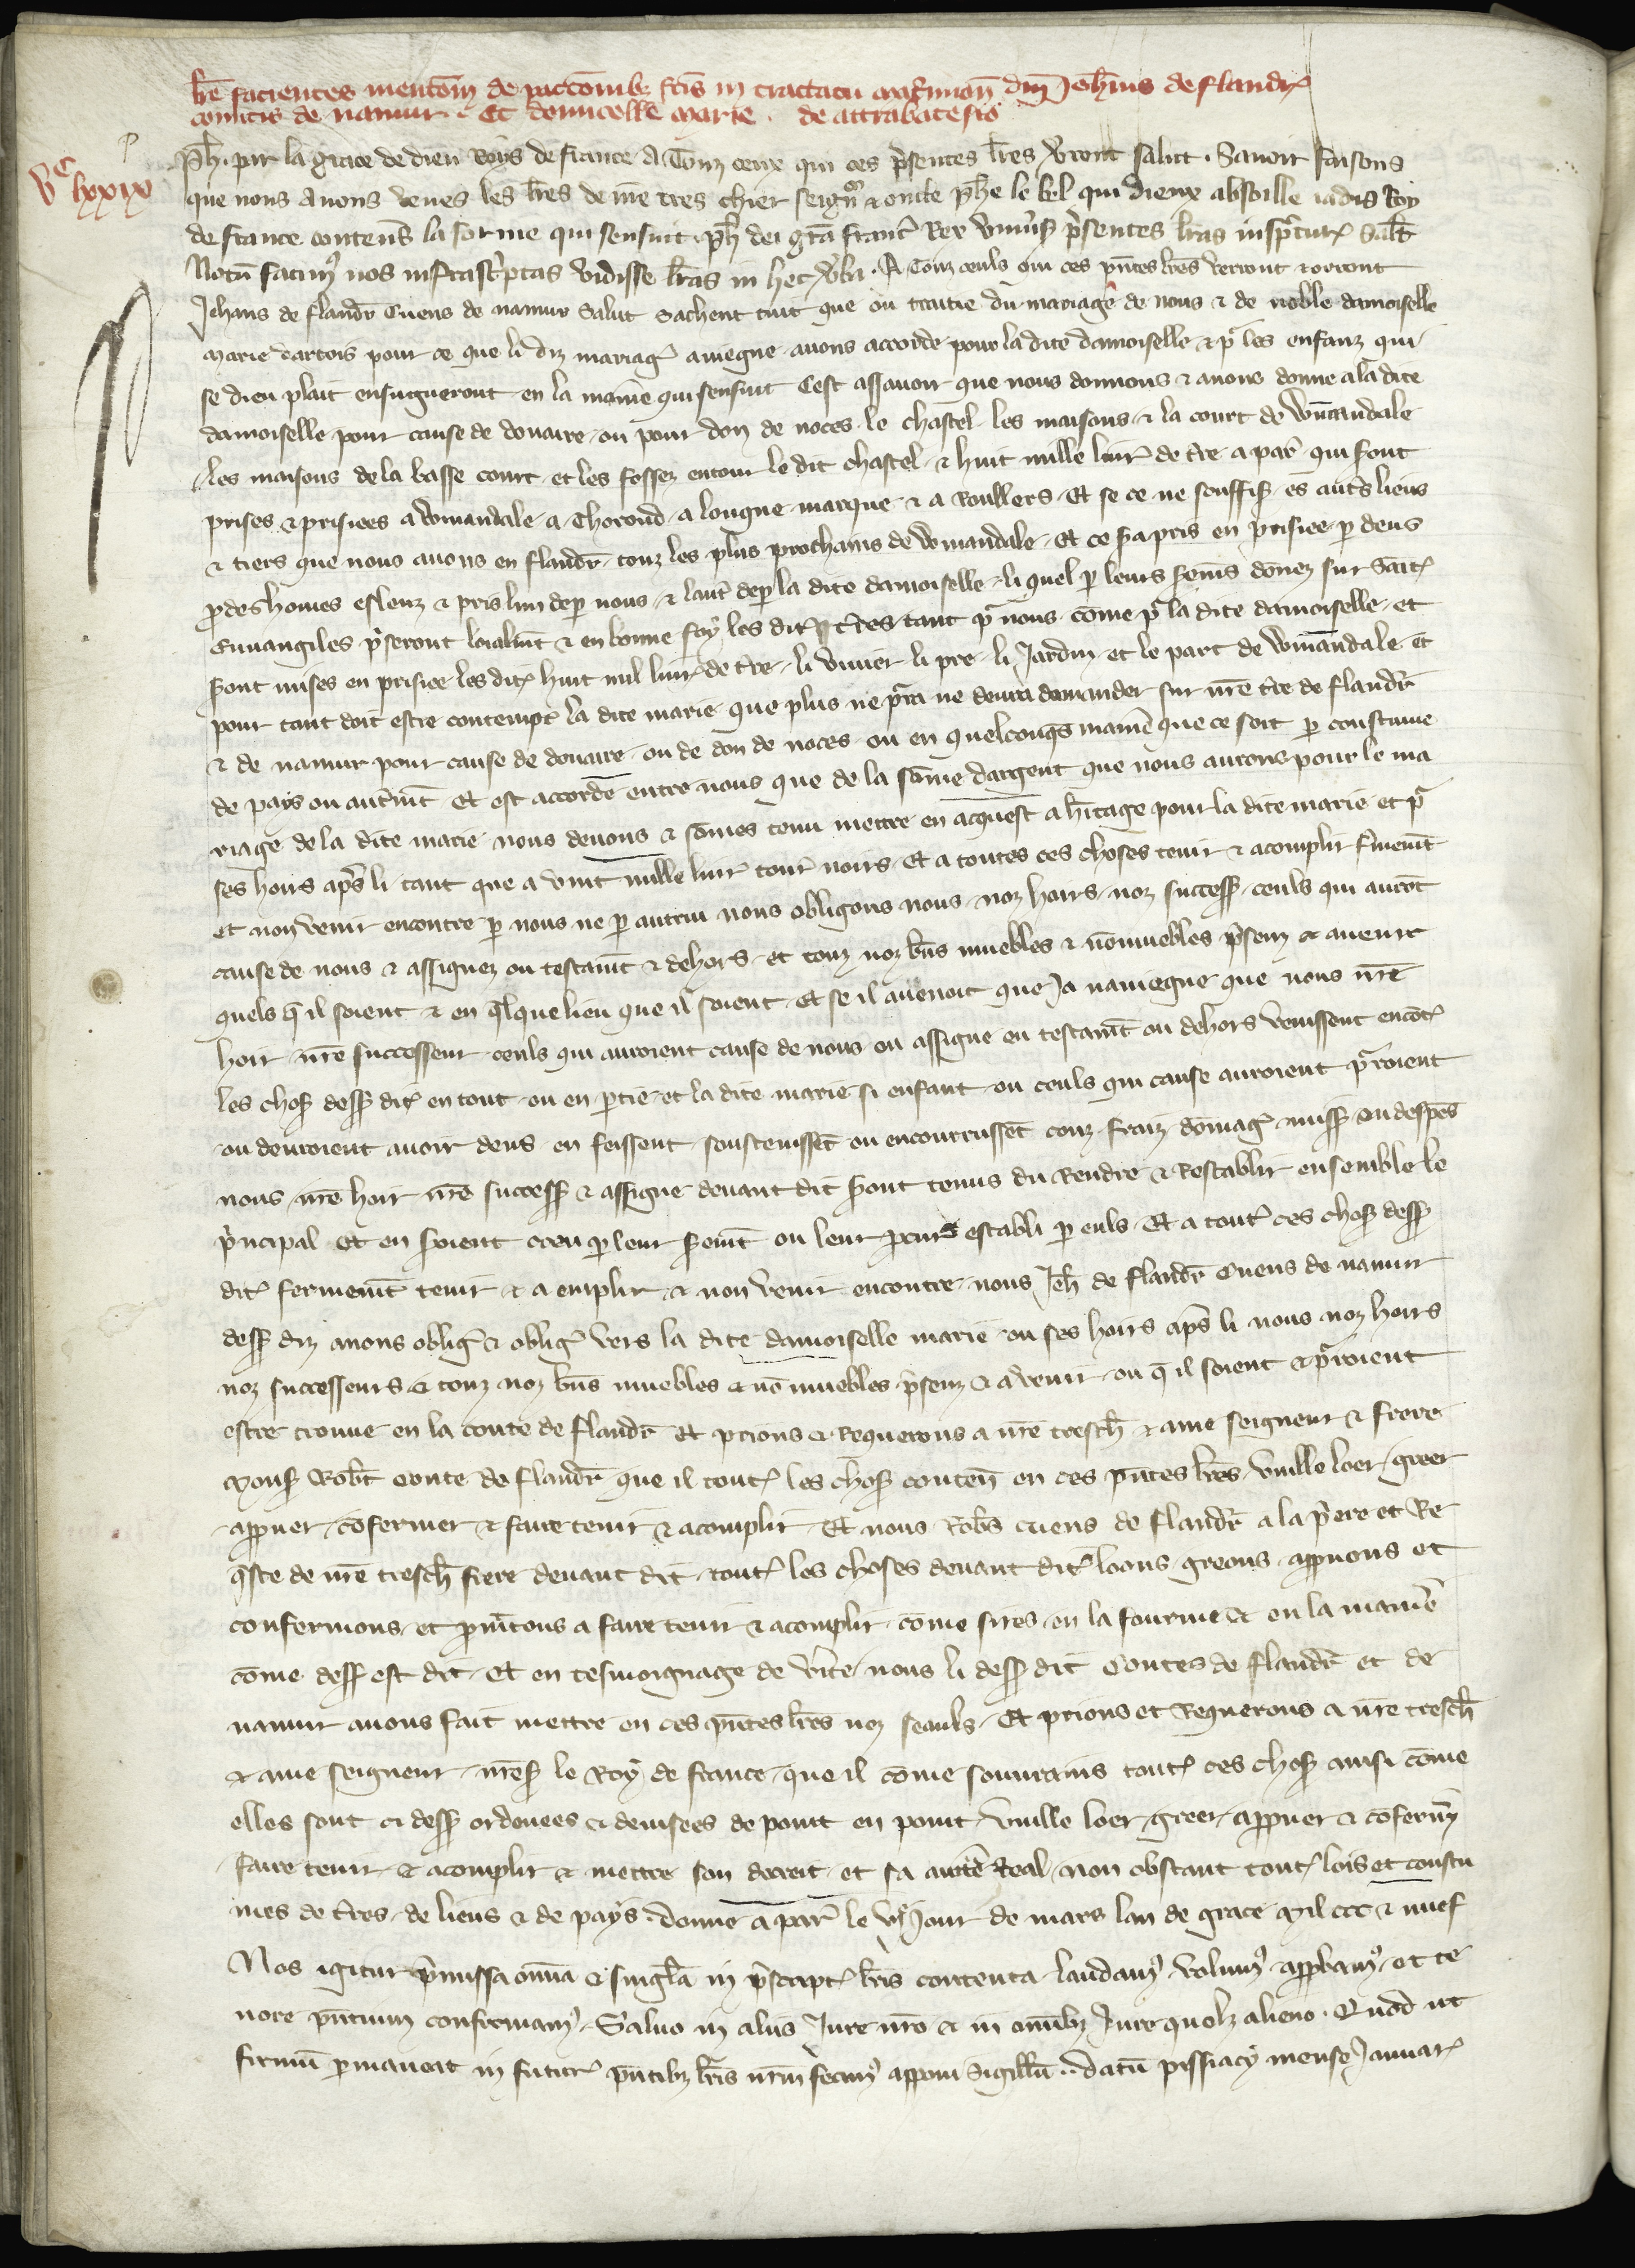 lre facientes mentom de pactomib fcis in tractatu matrimon dni Johnis de flandr
comitis de namur. Et domicelle marie. de attrabatesio
vc lxxix
Ph. par la grace de dieu Roys de france A Touz ceux qui ces presentes lres verront salut. Savoir faisons
que nous avons veues les lres de nre tres chier seigneur & oncle phe le bel qui dieux absoille iadis Roy
de france contens la forme qui sensuit. ph dei gra franc Rex univis presentes lras inspectur Salt
Notu facim nos infrascriptas vidisse lras in hec verba. A Touz ceuls qui ces pntes lres verront & orront
Jehans de flandr Cuens de namur Salut Sachent tuit que ou traitie du mariage de nous & de noble damoiselle
marie dartois pour ce que li diz mariag aviegne avons accorde pour la dite damoiselle & pr les enfanz qui
se dieu plait ensuigneront en la maniere qui sensuit Cest assavoir que nous donnons & avons donne a la dite
damoiselle pour cause de douaire ou pour don de noces le chastel les maisons & la court de Winandale
les maisons de la basse court et les fossez entour le dit chastel & huit mille livr de tre a par qui sont
prises & prisiees a Winandale a Thoroud a longue marque & a Roullers Et se ce ne souffis es autrs lieus
& tiers que nous avons en flandr touz les plus prochains de Winandale Et ce sera pris en prisiee p deus
prodeshomes esleuz & pris lun dep nous & lautre dep la dite damoiselle li quel p leurs sermens donez sur Saint
Euvangiles priseront loialmt & en bonne foy les dit tres tant pr nous come pr la dite damoiselle et
seront mises en prisiee les dit huit mil livr de tre li vivier li pre li Jardin et le parc de Winandale et
pour tant doit estre contempt la dite marie que plus ne pourra ne devra demander sur nre tre de flandr
& de namur pour cause de douaire ou de don de noces ou en quelconqs manie que ce soit p coustume
de pays ou autremt Et est accorde entre nous que de la some dargent que nous aurons pour le ma
riage de la dite marie nous devons & somes tenu mettre en acquest a heritage pour la dite marie et pr
ses hoirs apres li tant que a vint mille livr tour noirs Et a toutes ces choses tenir & acomplir fermemt
et non venir encontre p nous ne p autrui nous obligons nous noz hoirs noz success ceuls qui auront
cause de nous & assignez ou testamt & dehors et touz noz bns muebles & nonmuebles presenz & avenir
quels q il soient & en qlque lieu que il soient Et se il avenoit que Ja naviegne que nous nre
hoir nre successeur ceuls qui auroient cause de nous ou assigne ou testamt ou dehors venissent encontr
les chos dess dit en tout ou en partie et la dite marie si enfant ou ceuls qui cause auroient pourroient
ou devroient avoir deus en feissent soustenissent ou encourrussent couz fraiz domag miss ou despes
nous nre hoir nre success & assigne devant dit seront tenus du Rendre & Restablir ensemble le
principal Et en seroient creu p leur sermt ou leur procur establi p euls Et a tout ces chos dess
dit fermemt tenir & a emplir & non venir encontre nous Jeh de flandr Cuens de namur
dess diz avons oblig & oblig vers la dite damoiselle marie ou ses hoirs apres li nous noz hoirs
noz successeurs & touz noz bns muebles & no muebles presenz & avenir ou q il soient & pourroient
estre trouve en la conte de flandr Et prions & Requerons a nre tresch & ame seigneur & frere
Mons Robt Conte de flandr que il tout les chos conten en ces pntes lres vuille loer greer
appruer confermer & faire tenir & acomplir Et nous Robs cuens de flandr a la priere et Re
queste de nre tresch frere devant dit tout les choses devant dit loons greons appruons et
confermons et promtons a faire tenir & acomplir come sires en la fourme & en la maniere
come dess est dit Et en tesmoignage de verite nous li dess dit Contes de flandr et de
namur avons fait mettre en ces pntes lres noz seauls Et prions et Requerons a nre tresch
& ame seigneur mons le Roy de france que il come souvrains tout ces chos ainsi come
elles sont ci dess ordenees & devisees de point en point vuille loer greer appruer & confermer
faire tenir & acomplir & mettre son decreit et sa autte Real non obstant tout lois et coustu
mes de tres de lieus & de pays donne a par le vie Jour de mars lan de grace mil ccc & nuef
Nos igitur premissa omia & singula in prescript lris contenta laudam volum approbam et te
nore pntium confirmam Salvo in aliis Jure nro & in omibz Jure quolz alieno. Quod ut
firmu permaneat in futur pntibz lris nrm fecim apponi Sigillu. datu pissiaci mense Januar